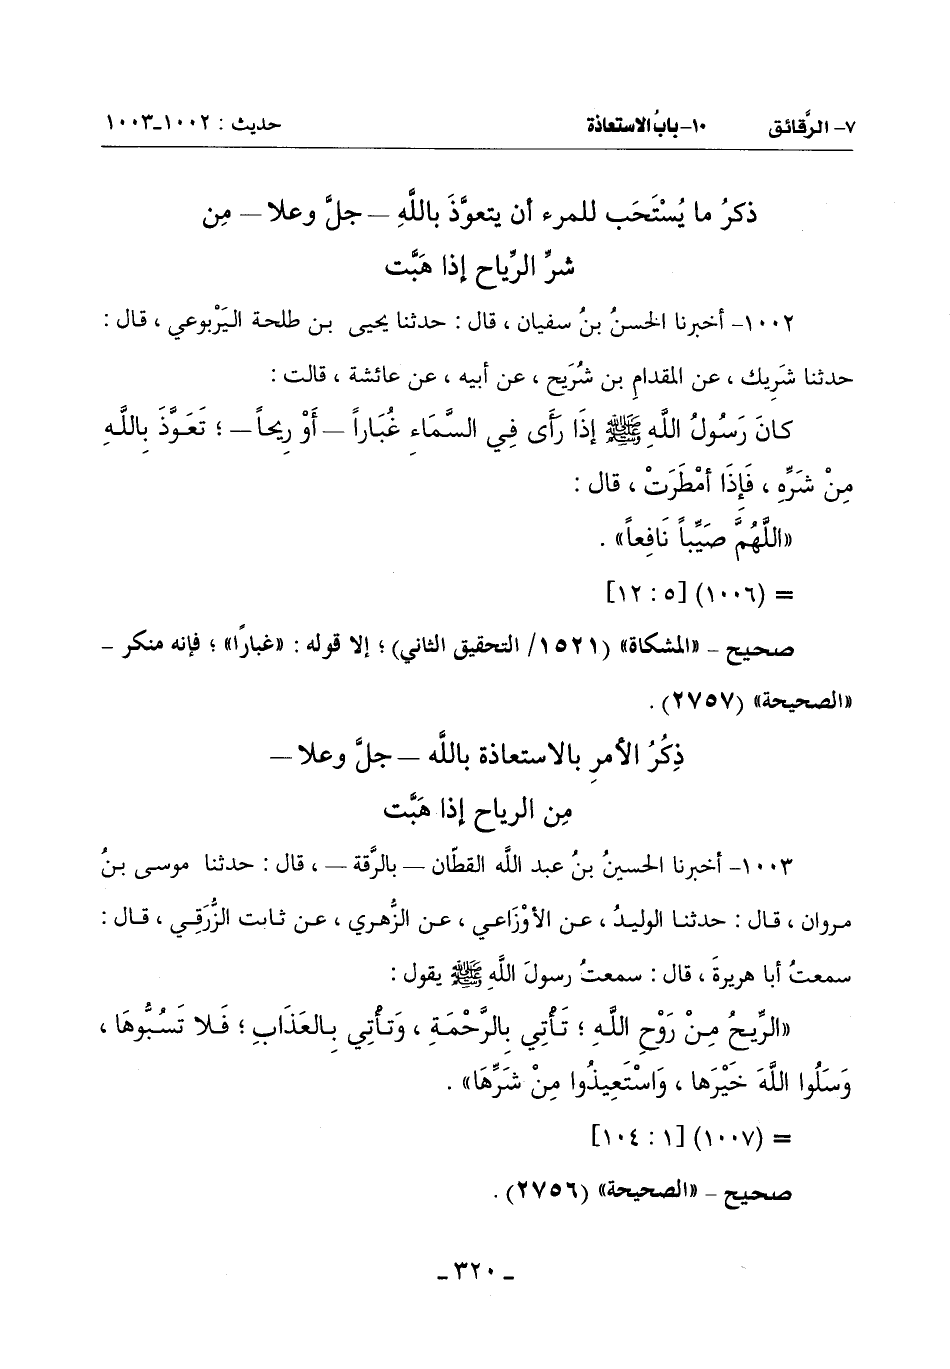 ٧- الرَّقائق ١٠-بابُ الاستعاذة حديث : ١٠٠٢-١٠٠٣
ذكرُ ما يُسْتَحَب للمرء أن يتعوَّذَ باللَّهِ – جلَّ وعلا – مِن
شرِّ الرِّياح إذا هَبَّت
١٠٠٢- أخبرنا الحسنُ بنُ سفيان ، قال : حدثنا يحيى بن طلحة اليَرْبوعي ، قال :
حدثنا شَرِيك ، عن المقدامِ بن شُرَيح ، عن أبيه ، عن عائشة ، قالت :
كانَ رَسُولُ اللَّهِ ﷺ إذَا رَأَى فِي السَّمَاءِ غُبَاراً – أَوْ رِيحاً – ؛ تَعَوَّذَ بِاللَّهِ
مِنْ شَرِّهِ ، فَإِذَا أمْطَرَتْ ، قال :
«اللَّهُمَّ صَيِّباً نَافِعاً» .
= (١٠٠٦) [٥ : ١٢]
صحيح – «المشكاة» (١٥٢١/ التحقيق الثاني) ؛ إلا قوله : «غبارًا» ؛ فإنه منكر –
«الصحيحة» (٢٧٥٧) .
ذِكُرُ الأمرِ بالاستعاذة باللَّه – جلَّ وعلا –
مِن الرياح إذا هَبَّت
١٠٠٣- أخبرنا الحسينُ بنُ عبد اللَّه القطّان – بالرَّقة – ، قال : حدثنا موسى بنُ
مروان ، قال : حدثنا الوليدُ ، عن الأوْزاعي ، عن الزُّهري ، عن ثابت الزُّرَقِي ، قال :
سمعتُ أبا هريرةَ ، قال : سمعتُ رسولَ اللَّهِ ﷺ يقول :
«الرِّيحُ مِنْ رَوْحِ اللَّهِ ؛ تَأْتِي بِالرَّحْمَةِ ، وَتَأْتِي بِالعَذَابِ ؛ فَلا تَسُبُّوهَا ،
وَسَلُوا اللَّهَ خَيْرَها ، وَاسْتَعِيذُوا مِنْ شَرِّهَا» .
= (١٠٠٧) [١ : ١٠٤]
صحيح – «الصحيحة» (٢٧٥٦) .
- ٣٢٠ -